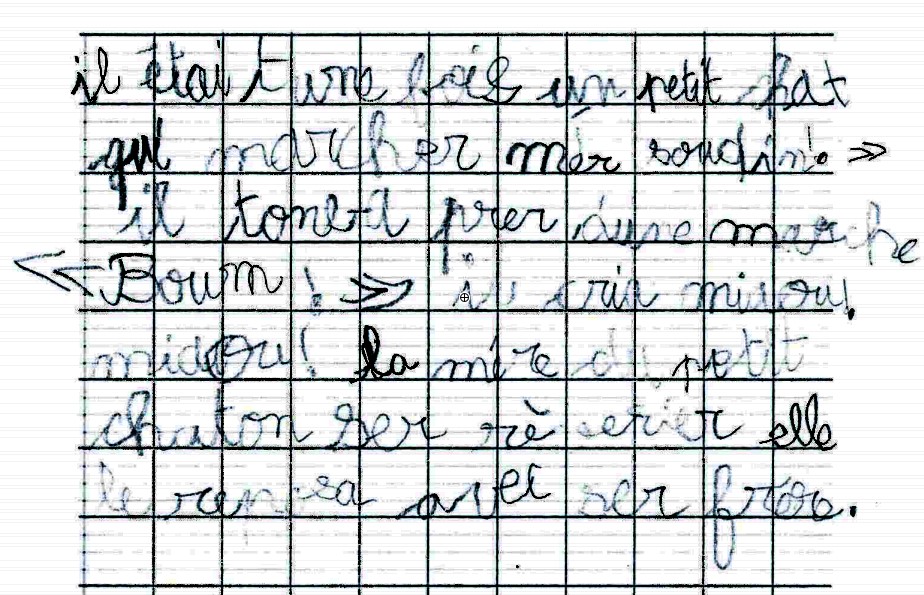 il étai t une fois un petit chat
qui marcher mer soudin! »
il tone-d prer dune marche
« Boum ! » il cria miaou!
miaou! la mère du petit
chaton ser rè erier elle
le reposa avec ser frère.